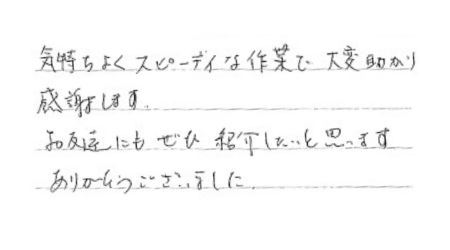 気持ちよくスピーディな作業で大変助かり
感謝します.
お友達にもぜひ紹介したいと思います
ありがとうございました.